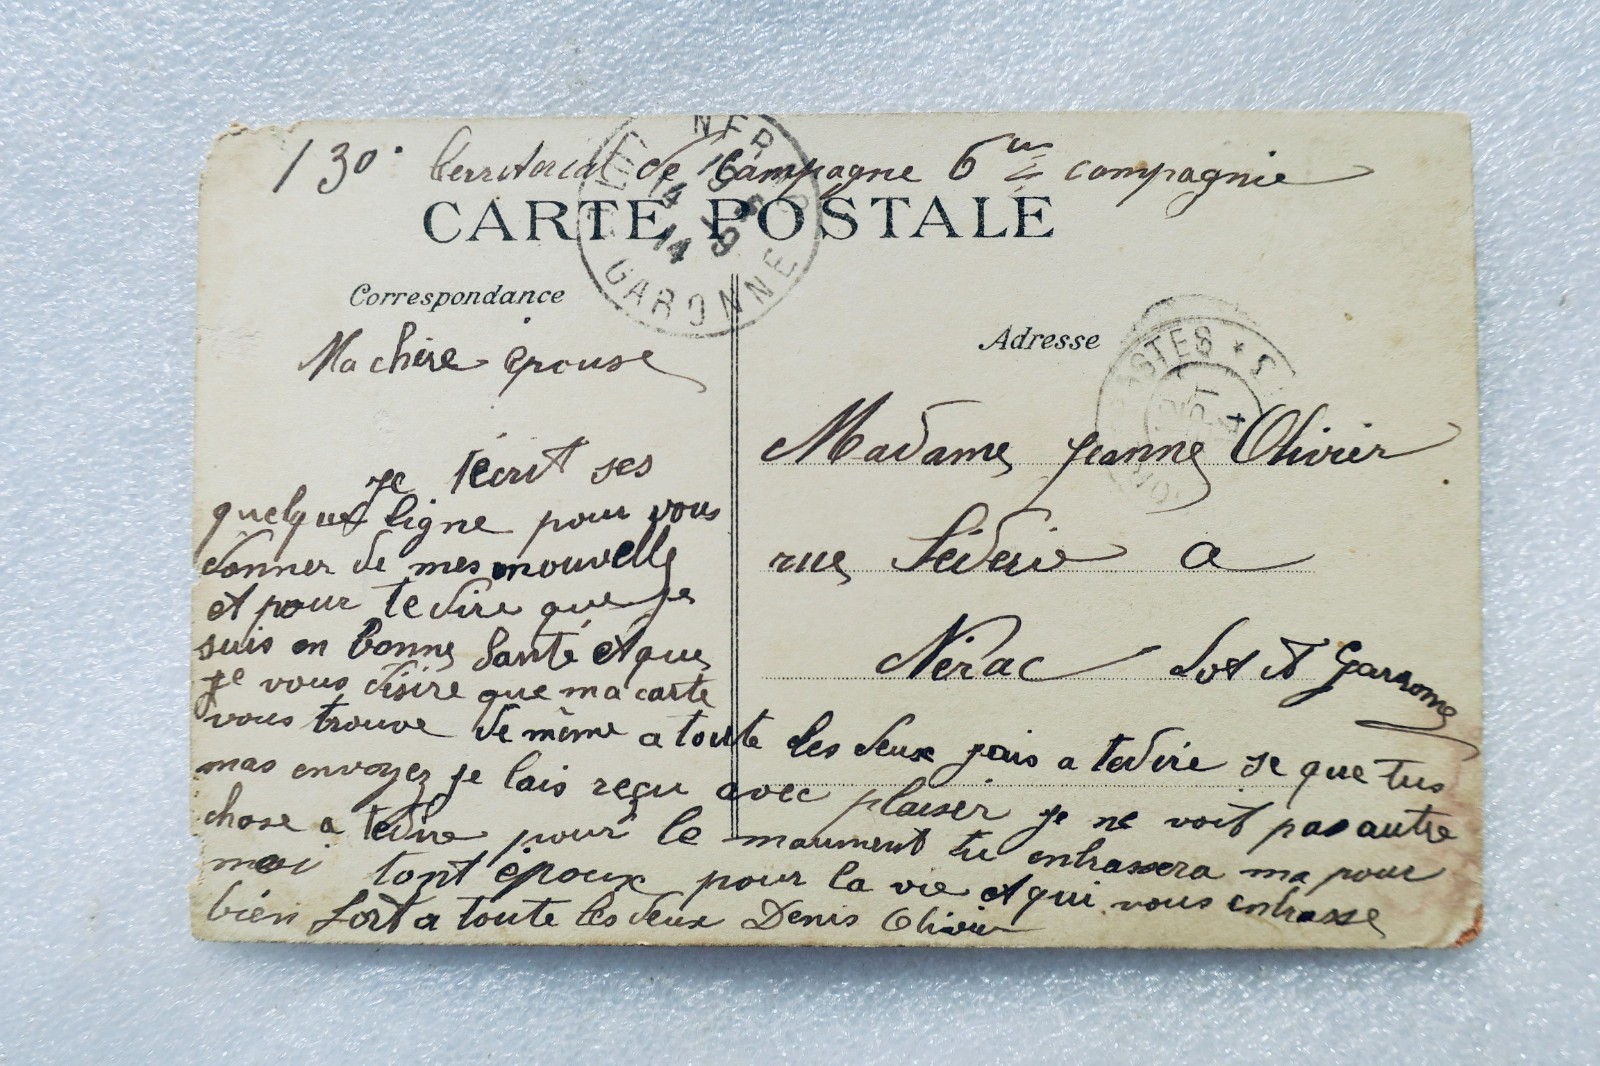 130° Territorial de Campagne 6me compagnie
CARTE POSTALE
NERAC
14 9
14
GARONNE
Correspondance
Adresse
POSTES * S
Ma chère épouse
je técrit ses
quelques ligne pour vous
donner de mes nouvelle
et pour te dire que je
suis en bonne santé et que
je vous désire que ma carte
vous trouve de même a toute les deux jais a te dire se que tus
mas envoyez je lais reçu avec plaisir je ne voit pas autre
chose a te dire pour le maument tu enbrassera ma pour
moi tont époux pour la vie et qui vous enbrasse
bien fort a toute les deux Denis Olivier
Madame Jeanne Olivier
rue Séderie a
Nérac Lot et Garronne